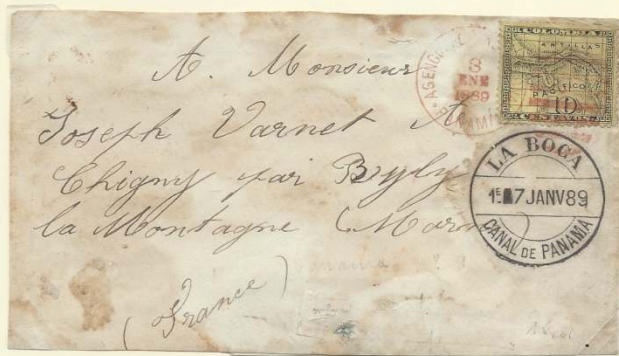 A. Monsieur
Joseph Varnet A
Chigny par
la Montagne (Marne)
(France)
AGENCIA
8
ENE
1889
PANAMA
COLOMBIA
ANTILLAS
PACIFICO
10
CENTAVOS
LA BOCA
1E 7 JANV 89
CANAL DE PANAMA